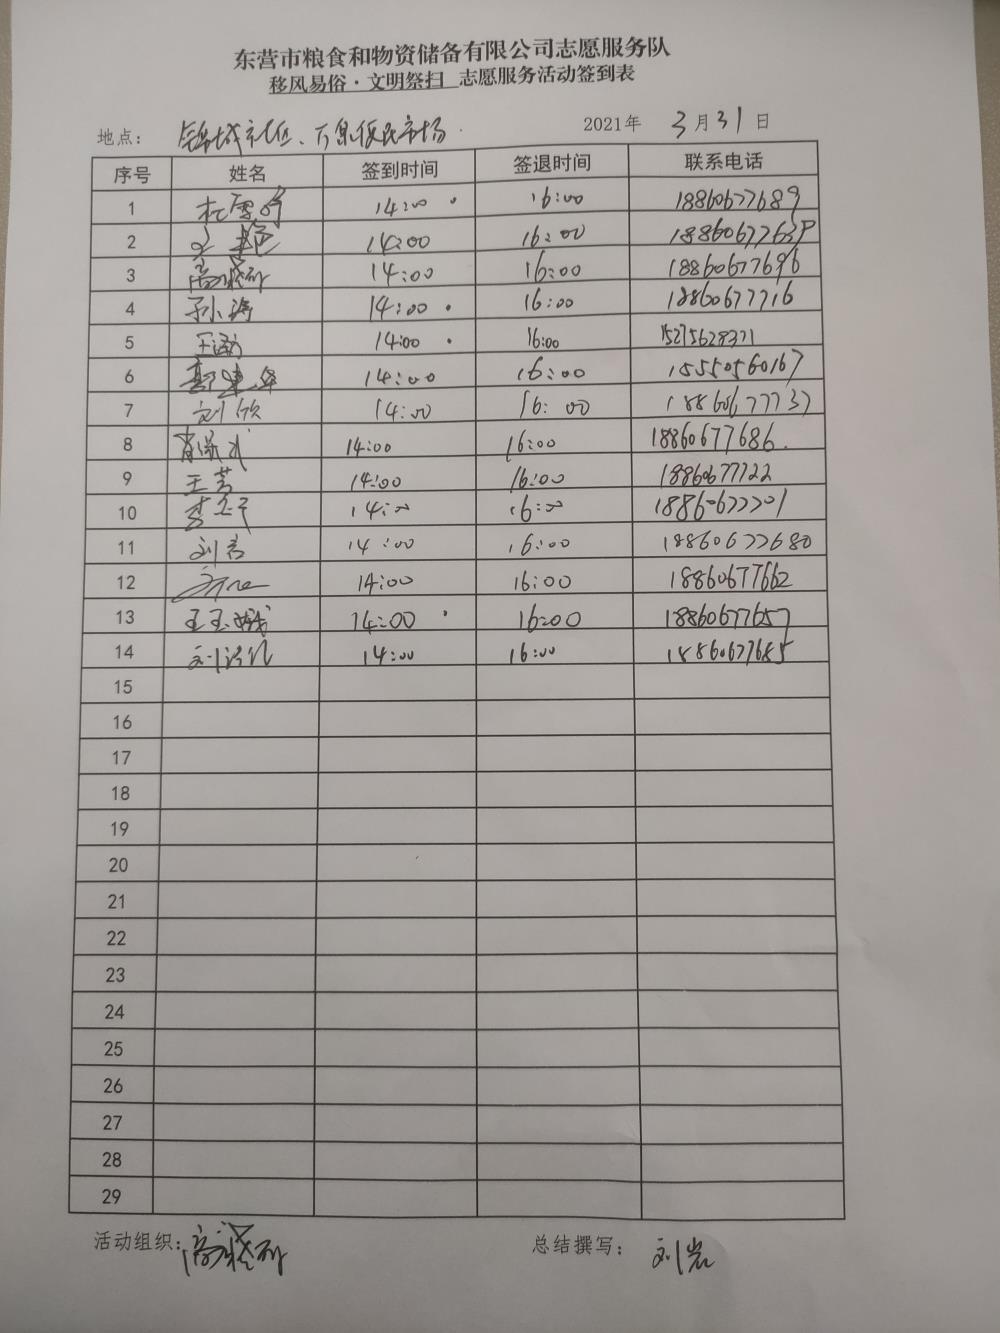 东营市粮食和物资储备有限公司志愿服务队
移风易俗·文明祭扫 志愿服务活动签到表
地点： 2021年 3月31日
序号 姓名 签到时间 签退时间 联系电话
1 14:00 16:00 18860677689
2 14:00 16:00
3 14:00 16:00 18860677696
4 孙小涛 14:00 16:00 18860677716
5 14:00 16:00 15275628371
6 14:00 16:00 15550560167
7 刘欣 14:00 16:00 18860677737
8 14:00 16:00 18860677686
9 王芳 14:00 16:00 18860677722
10 14:00 16:00 18860677701
11 刘岩 14:00 16:00 18860677680
12 14:00 16:00 18860677662
13 王玉娥 14:00 16:00 18860677657
14 14:00 16:00 18860677685
15
16
17
18
19
20
21
22
23
24
25
26
27
28
29
活动组织： 总结撰写： 刘岩